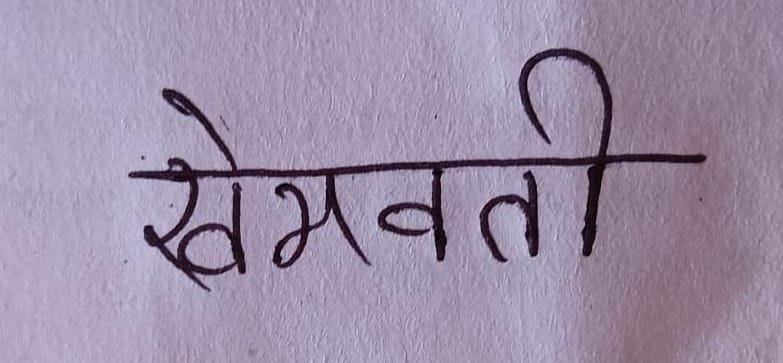 खेमवती